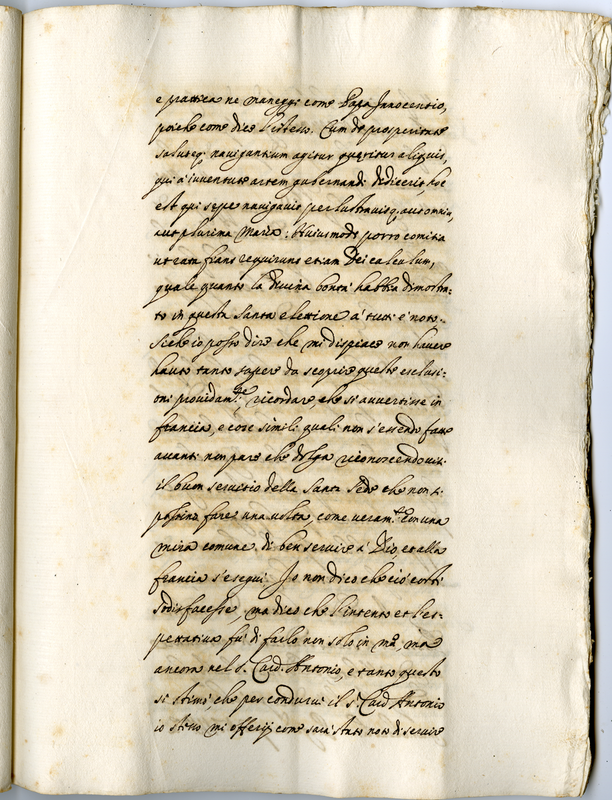 e prattica ne maneggi come Papa Innocentio,
poiche come dice l'istesso. Cum de prosperitate
saluteq; navigantium agitur quęritur aliquis,
qui a iuventute artem gubernandi didicerit, hoc
est qui sępe navigavit perlustravitq, aut omnia,
aut plurima Maria: Huiusmodi porro comitia
ut rata fiant requirunt etiam Dei calculum,
quale quanto la divina bontà habbia dimostra:
to in questa santa elettione a' tutti è noto.
Siche io posso dire che mi dispiace non havere
hauto tanto sapere da scoprire queste esclusi:
oni providam.te, ricordare, che si avvertisse in
francia, e cose simili quali non s'essendo fatte
avanti non pare che dolga riconoscendovisi
il buon servitio della Santa Sede che non si
possino fare una volta, come veram.te con una
mira comune di ben servire a' Dio, et alla
francia s'eseguì. Io non dico che ciò costì
sodisfacesse, ma dico che l'intento et l'es:
pettativa fu' di farlo non solo in me, ma
ancora nel s. Card. Antonio, e tanto questo
si stimò, che per condurvi il s. Card Antonio
io stesso mi offerij come sarà stato noto di servire